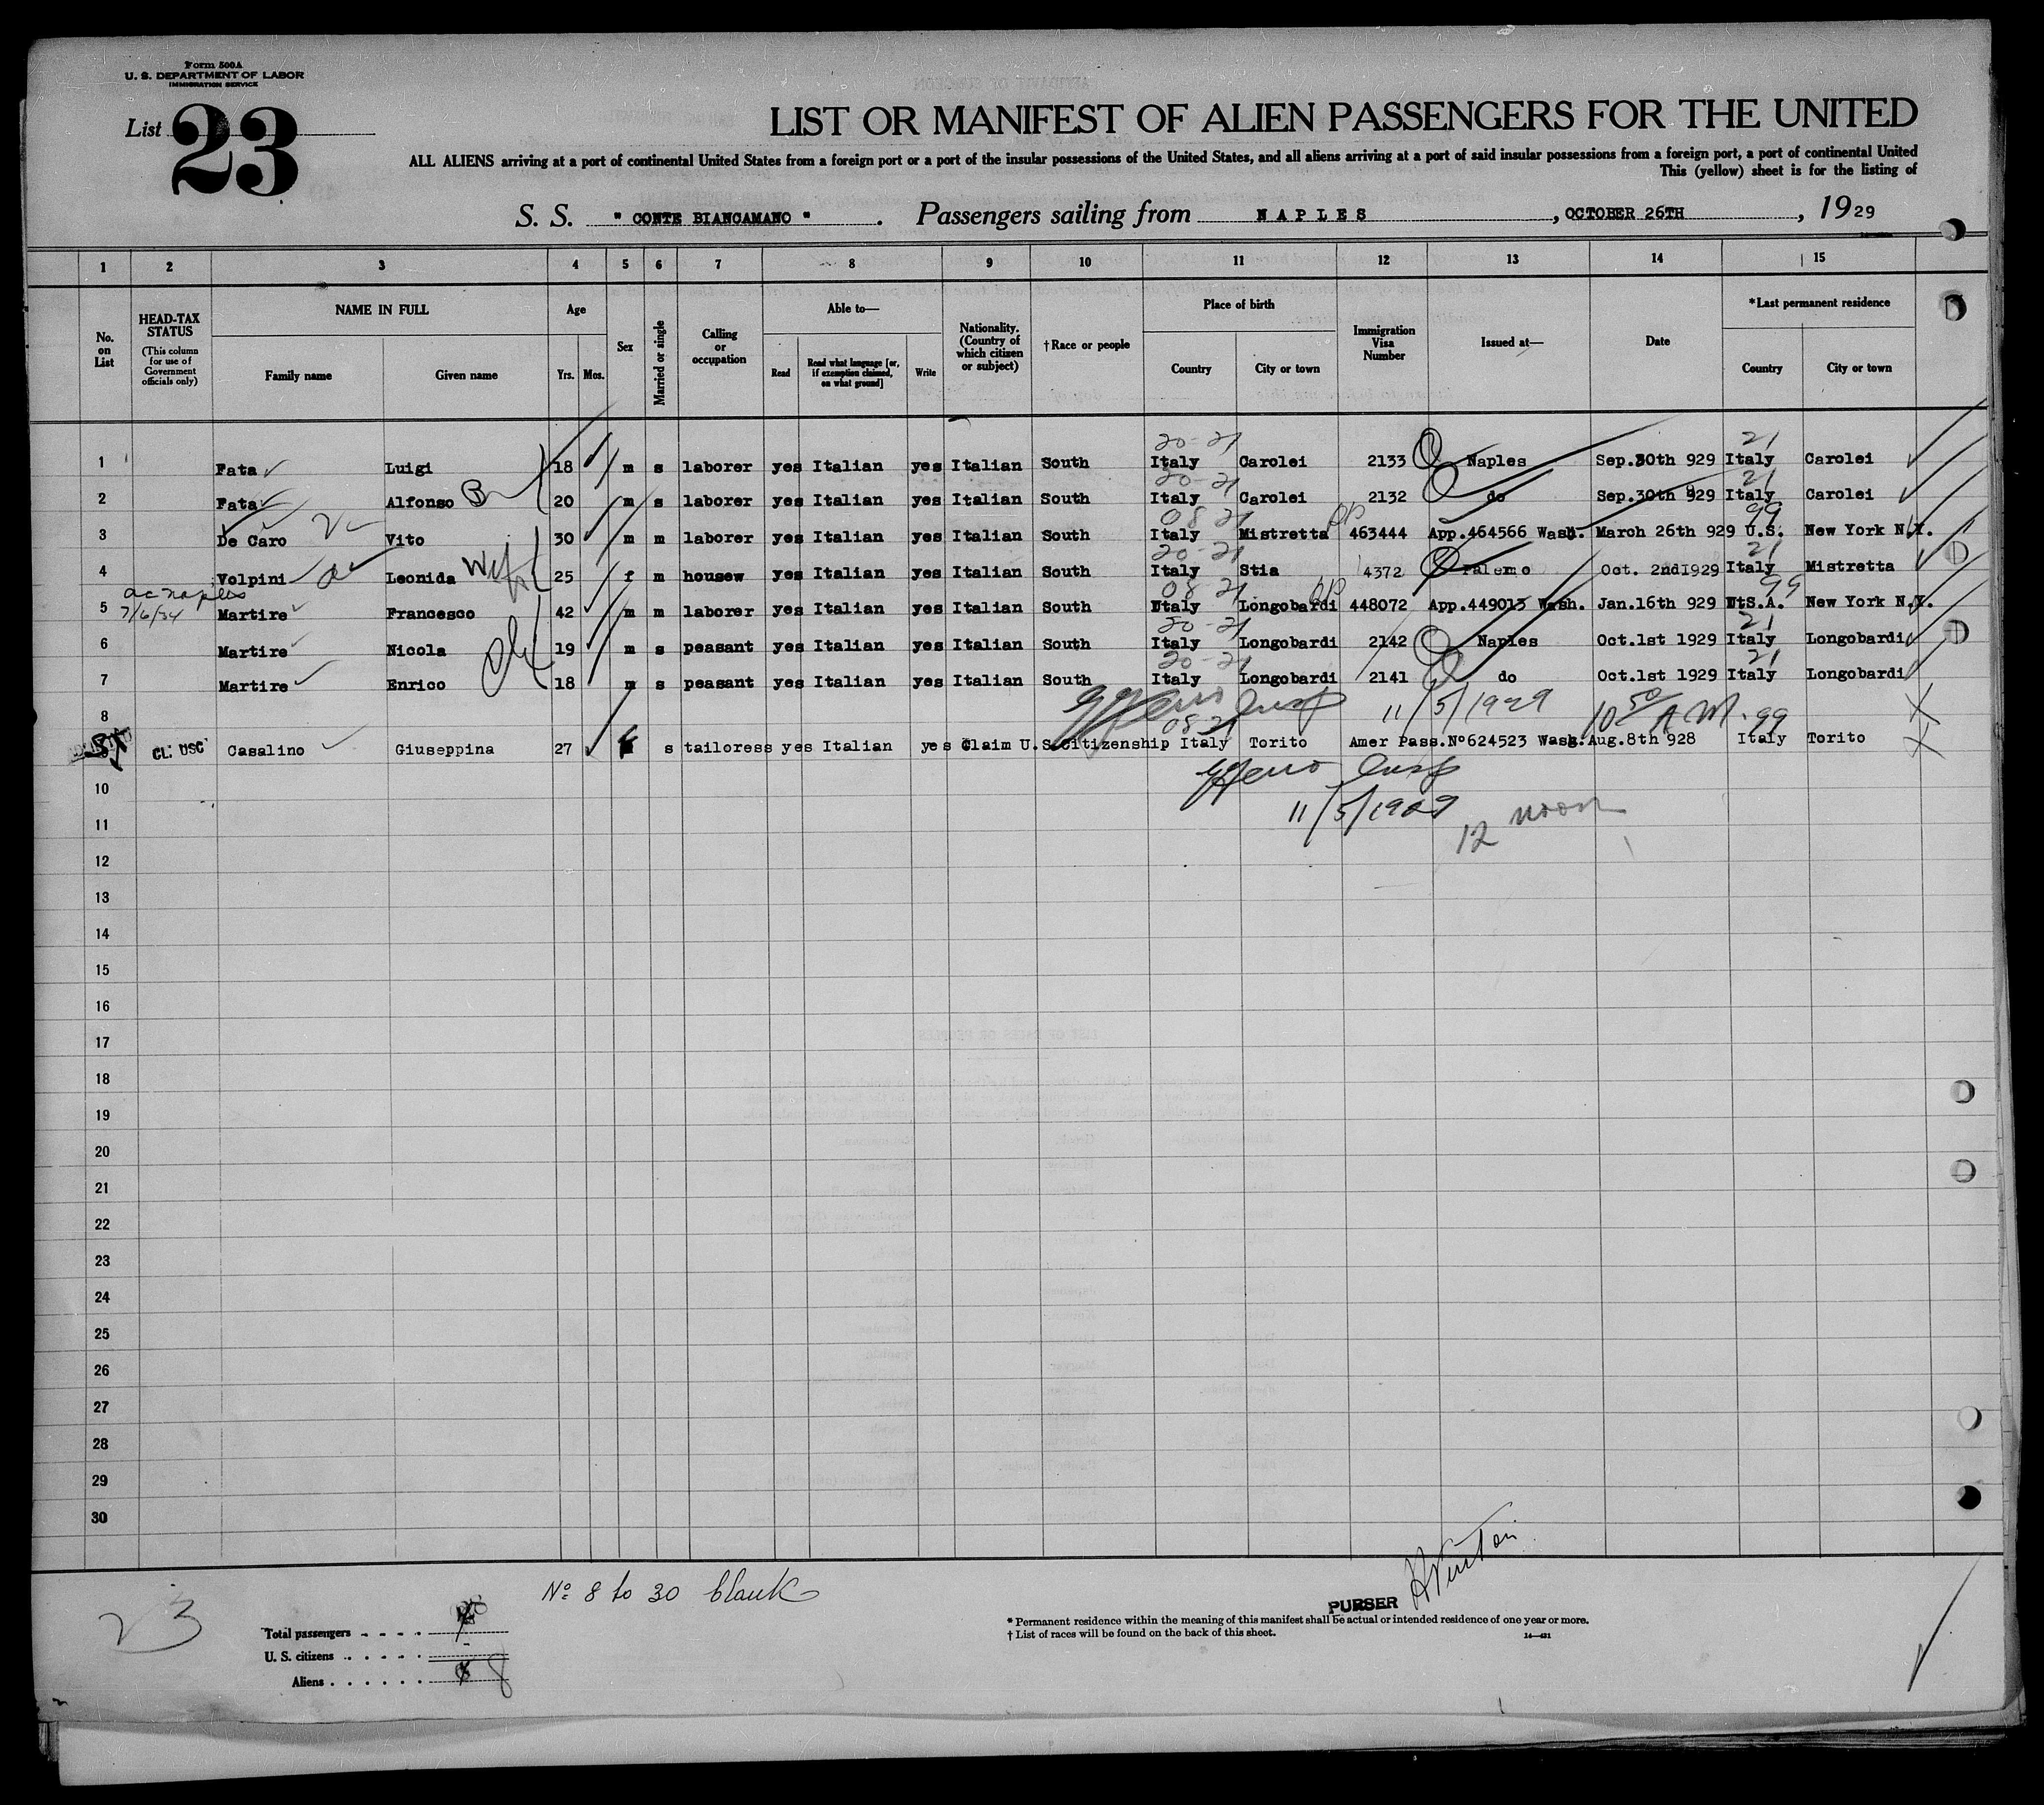 Form 500A
U. S. DEPARTMENT OF LABOR
IMMIGRATION SERVICE
List 23
LIST OR MANIFEST OF ALIEN PASSENGERS FOR THE UNITED
ALL ALIENS arriving at a port of continental United States from a foreign port or a port of the insular possessions of the United States, and all aliens arriving at a port of said insular possessions from a foreign port, a port of continental United
This (yellow) sheet is for the listing of
S. S. " CONTE BIANCAMANO ". Passengers sailing from NAPLES, OCTOBER 26TH, 1929
1 2 3 4 5 6 7 8 9 10 11 12 13 14 15
No. on List
HEAD-TAX STATUS (This column for use of Government officials only)
NAME IN FULL
Family name Given name
Age
Yrs. Mos.
Sex
Married or single
Calling or occupation
Able to—
Read
Read what language [or, if exemption claimed, on what ground]
Write
Nationality. (Country of which citizen or subject)
†Race or people
Place of birth
Country City or town
Immigration Visa Number
Issued at—
Date
*Last permanent residence
Country City or town
20-21 21
1 Fata Luigi 18 m s laborer yes Italian yes Italian South Italy Carolei 2133 Naples Sep.30th 929 Italy Carolei
20-21 21
2 Fata Alfonso B 20 m s laborer yes Italian yes Italian South Italy Carolei 2132 do Sep.30th 929 Italy Carolei
08 21 99
3 De Caro Vito 30 m m laborer yes Italian yes Italian South Italy Mistretta 463444 App.464566 Wash. March 26th 929 U.S. New York N.Y.
20-21 21
4 Volpini Leonida Wife 25 f m housew yes Italian yes Italian South Italy Stia 4372 Palermo Oct. 2nd1929 Italy Mistretta
ac naples
7/6/34
08 21 99
5 Martire Francesco 42 m m laborer yes Italian yes Italian South Italy Longobardi 448072 App.449013 Wash. Jan.16th 929 U.S.A. New York N.Y.
20-21 21
6 Martire Nicola 19 m s peasant yes Italian yes Italian South Italy Longobardi 2142 Naples Oct.1st 1929 Italy Longobardi
20-21 21
7 Martire Enrico 18 m s peasant yes Italian yes Italian South Italy Longobardi 2141 do Oct.1st 1929 Italy Longobardi
8 Insp 11/5/1929 10 50 A M.
08 21 99
CL: USC Casalino Giuseppina 27 f s tailoress yes Italian yes Claim U.S.citizenship Italy Torito Amer Pass.Nº624523 Wash. Aug.8th 928 Italy Torito
Insp
10
11/5/1929
11
12 noon
12
13
14
15
16
17
18
19
20
21
22
23
24
25
26
27
28
29
30
Nº 8 to 30 blank
23
Total passengers
U. S. citizens
Aliens 8
PURSER
* Permanent residence within the meaning of this manifest shall be actual or intended residence of one year or more.
† List of races will be found on the back of this sheet.
14—421